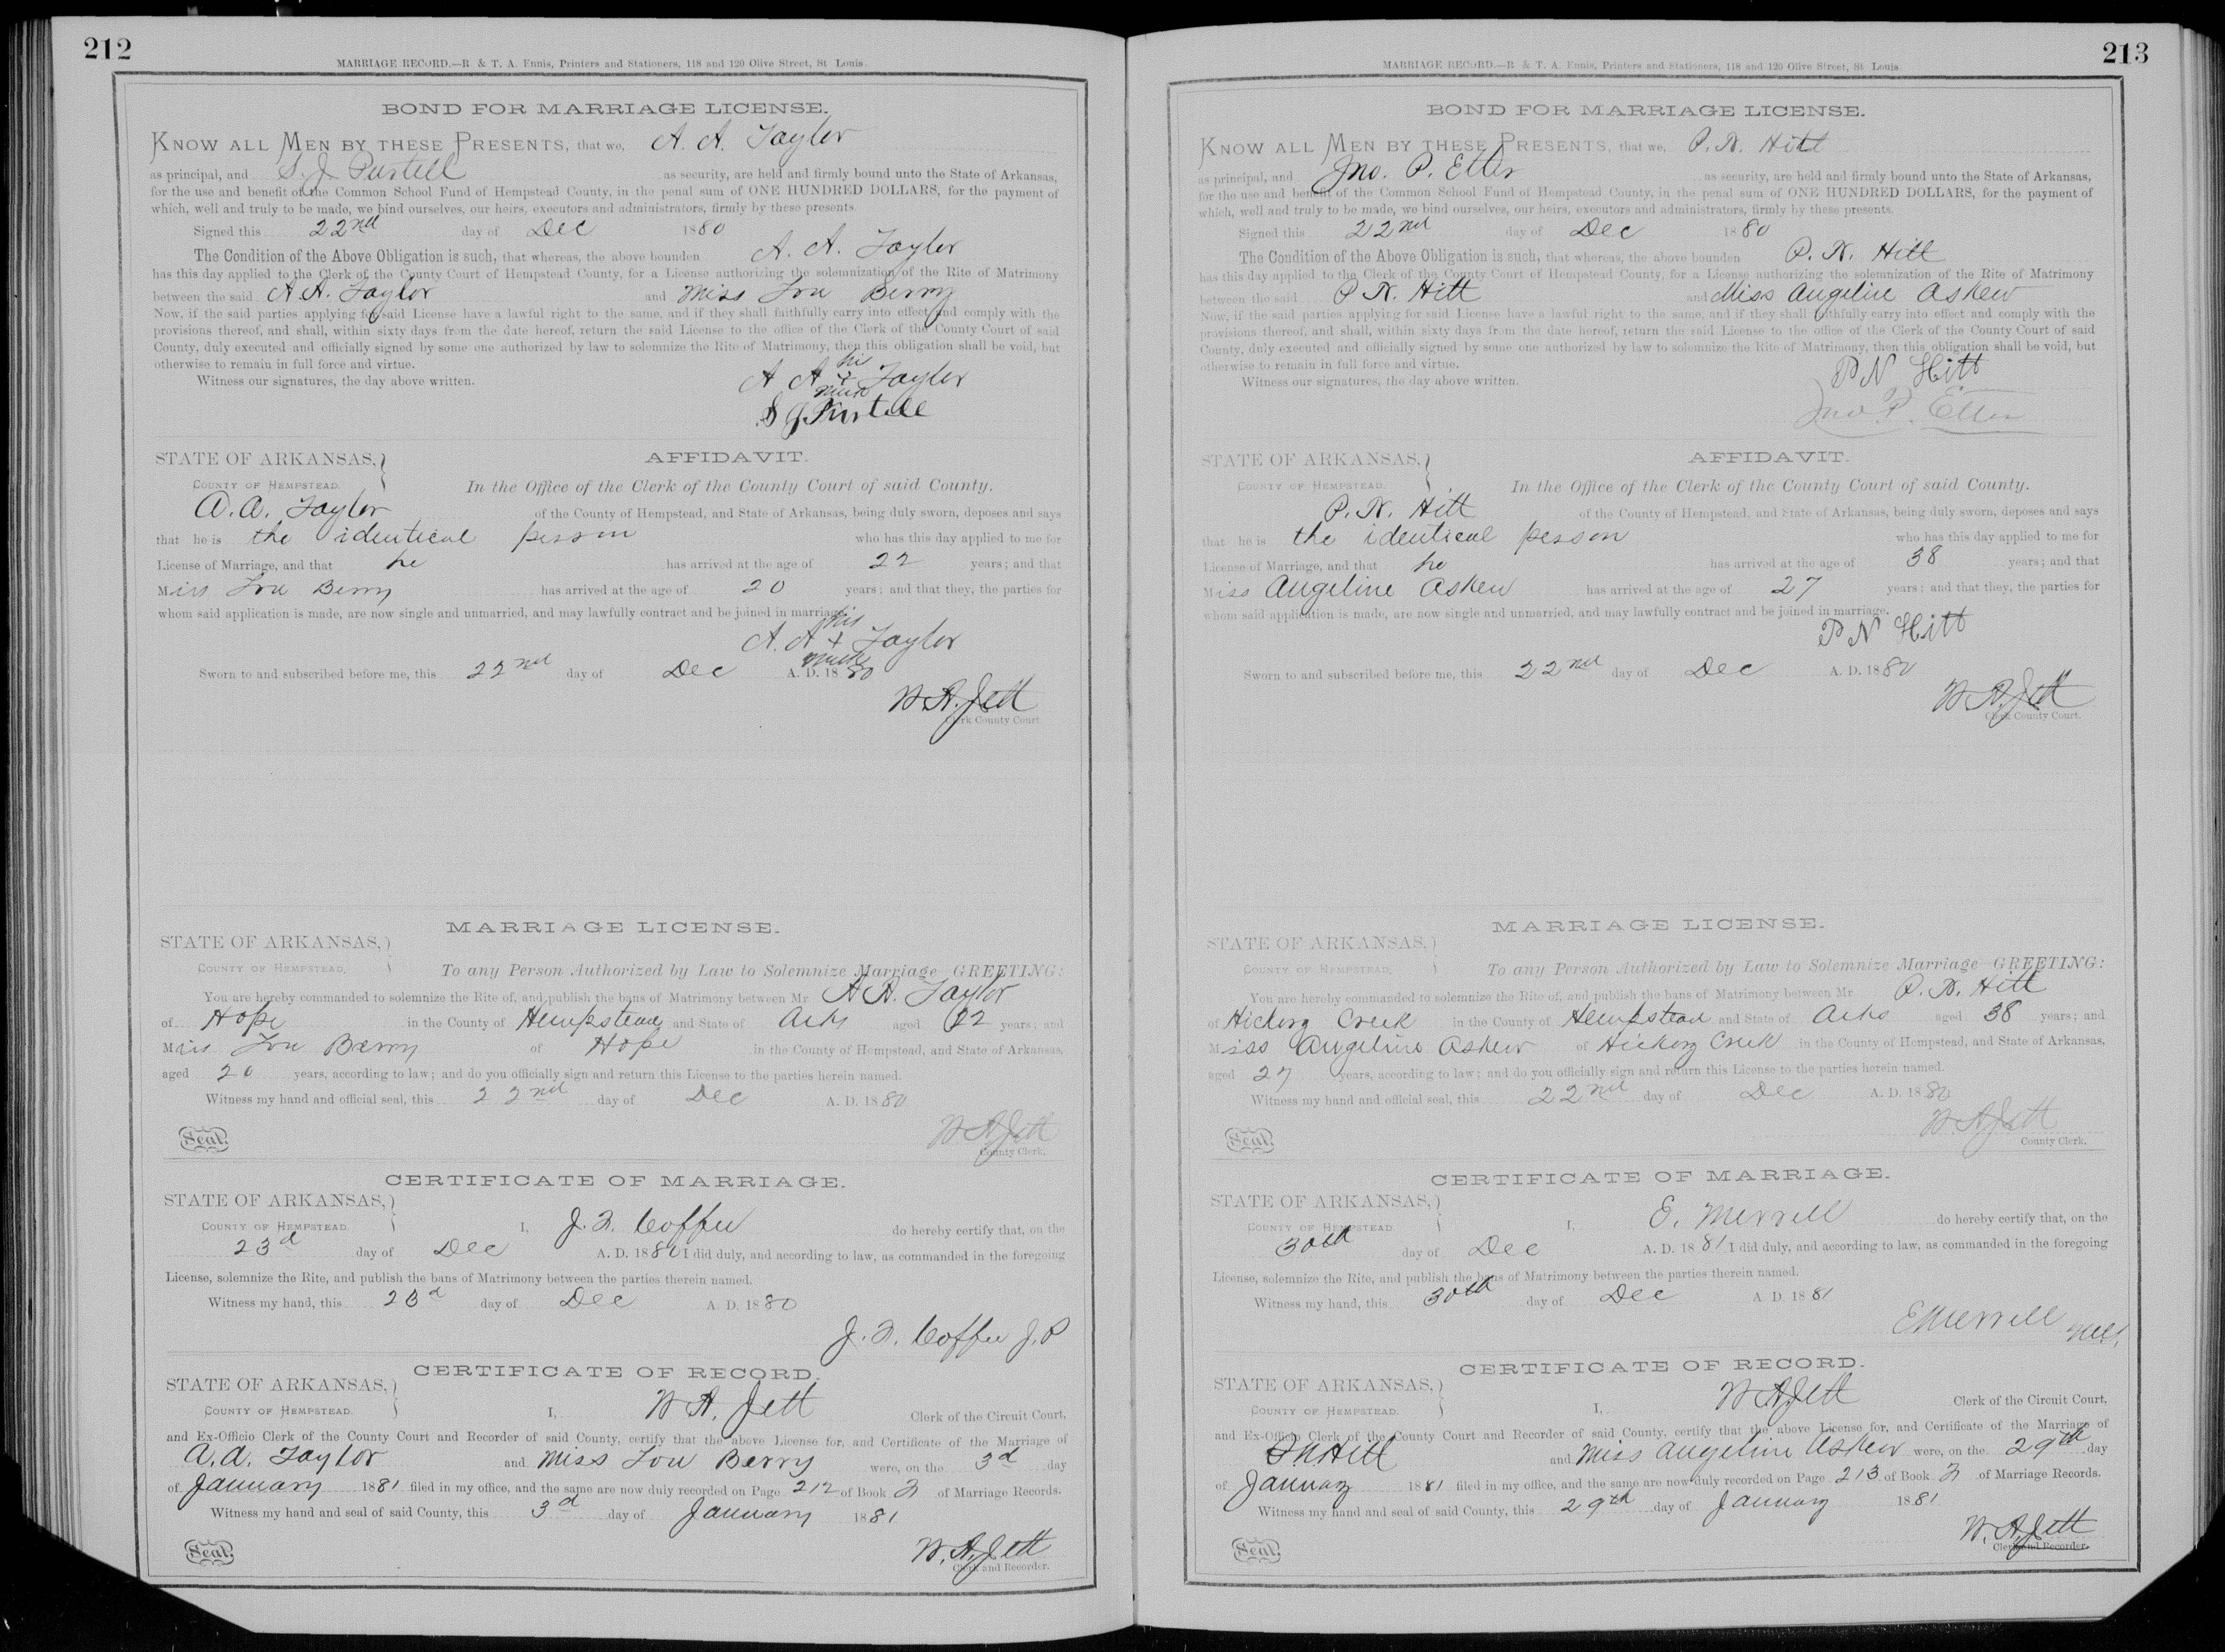 212
MARRIAGE RECORD.—R & T. A. Ennis, Printers and Stationers, 118 and 120 Olive Street, St Louis.
BOND FOR MARRIAGE LICENSE.
KNOW ALL MEN BY THESE PRESENTS, that we, A. A. Taylor
as principal, and S. J. Purtell as security, are held and firmly bound unto the State of Arkansas,
for the use and benefit of the Common School Fund of Hempstead County, in the penal sum of ONE HUNDRED DOLLARS, for the payment of
which, well and truly to be made, we bind ourselves, our heirs, executors and administrators, firmly by these presents.
Signed this 22nd day of Dec 1880
The Condition of the Above Obligation is such, that whereas, the above bounden A. A. Taylor
has this day applied to the Clerk of the County Court of Hempstead County, for a License authorizing the solemnization of the Rite of Matrimony
between the said A A. Taylor and Miss Lou Berry
Now, if the said parties applying for said License have a lawful right to the same, and if they shall faithfully carry into effect and comply with the
provisions thereof, and shall, within sixty days from the date hereof, return the said License to the office of the Clerk of the County Court of said
County, duly executed and officially signed by some one authorized by law to solemnize the Rite of Matrimony, then this obligation shall be void, but
otherwise to remain in full force and virtue.
Witness our signatures, the day above written.
his
A A + Taylor
mark
S J Purtell
STATE OF ARKANSAS, AFFIDAVIT.
COUNTY OF HEMPSTEAD. In the Office of the Clerk of the County Court of said County.
A. A. Taylor of the County of Hempstead, and State of Arkansas, being duly sworn, deposes and says
that he is the identical person who has this day applied to me for
License of Marriage, and that he has arrived at the age of 22 years; and that
Miss Lou Berry has arrived at the age of 20 years; and that they, the parties for
whom said application is made, are now single and unmarried, and may lawfully contract and be joined in marriage.
his
A. A + Taylor
mark
Sworn to and subscribed before me, this 22nd day of Dec A. D. 1880
W. A. Jett
Clerk County Court.
MARRIAGE LICENSE.
STATE OF ARKANSAS,
COUNTY OF HEMPSTEAD. To any Person Authorized by Law to Solemnize Marriage—GREETING:
You are hereby commanded to solemnize the Rite of, and publish the bans of Matrimony between Mr A A. Taylor
of Hope in the County of Hempstead and State of Arks aged 22 years; and
Miss Lou Berry of Hope in the County of Hempstead, and State of Arkansas,
aged 20 years, according to law; and do you officially sign and return this License to the parties herein named.
Witness my hand and official seal, this 22nd day of Dec A. D. 1880
W A Jett
Seal. County Clerk.
CERTIFICATE OF MARRIAGE.
STATE OF ARKANSAS,
COUNTY OF HEMPSTEAD. I, J. F. Coffee do hereby certify that, on the
23d day of Dec A. D. 1880 I did duly, and according to law, as commanded in the foregoing
License, solemnize the Rite, and publish the bans of Matrimony between the parties therein named.
Witness my hand, this 23d day of Dec A. D. 1880
J. F. Coffee J. P
CERTIFICATE OF RECORD.
STATE OF ARKANSAS,
COUNTY OF HEMPSTEAD. I, W A. Jett Clerk of the Circuit Court,
and Ex-Officio Clerk of the County Court and Recorder of said County, certify that the above License for, and Certificate of the Marriage of
A. A. Taylor and Miss Lou Berry were, on the 3d day
of January 1881 filed in my office, and the same are now duly recorded on Page 212 of Book F of Marriage Records.
Witness my hand and seal of said County, this 3d day of January 1881
W. A. Jett
Seal. Clerk and Recorder.
213
MARRIAGE RECORD.—R & T. A. Ennis, Printers and Stationers, 118 and 120 Olive Street, St Louis
BOND FOR MARRIAGE LICENSE.
KNOW ALL MEN BY THESE PRESENTS, that we, P. N. Hitt
as principal, and Jno. P. Etter as security, are held and firmly bound unto the State of Arkansas,
for the use and benefit of the Common School Fund of Hempstead County, in the penal sum of ONE HUNDRED DOLLARS, for the payment of
which, well and truly to be made, we bind ourselves, our heirs, executors and administrators, firmly by these presents.
Signed this 22nd day of Dec 1880
The Condition of the Above Obligation is such, that whereas, the above bounden P. N. Hitt
has this day applied to the Clerk of the County Court of Hempstead County, for a License authorizing the solemnization of the Rite of Matrimony
between the said P N. Hitt and Miss Angeline Askew
Now, if the said parties applying for said License have a lawful right to the same, and if they shall faithfully carry into effect and comply with the
provisions thereof, and shall, within sixty days from the date hereof, return the said License to the office of the Clerk of the County Court of said
County, duly executed and officially signed by some one authorized by law to solemnize the Rite of Matrimony, then this obligation shall be void, but
otherwise to remain in full force and virtue.
Witness our signatures, the day above written.
P N Hitt
Jno P. Etter
STATE OF ARKANSAS, AFFIDAVIT.
COUNTY OF HEMPSTEAD. In the Office of the Clerk of the County Court of said County.
P. N. Hitt of the County of Hempstead, and State of Arkansas, being duly sworn, deposes and says
that he is the identical person who has this day applied to me for
License of Marriage, and that he has arrived at the age of 38 years; and that
Miss Angeline Askew has arrived at the age of 27 years; and that they, the parties for
whom said application is made, are now single and unmarried, and may lawfully contract and be joined in marriage.
P N Hitt
Sworn to and subscribed before me, this 22nd day of Dec A. D. 1880
W A. Jett
Clerk County Court.
MARRIAGE LICENSE.
STATE OF ARKANSAS,
COUNTY OF HEMPSTEAD. To any Person Authorized by Law to Solemnize Marriage—GREETING:
You are hereby commanded to solemnize the Rite of, and publish the bans of Matrimony between Mr P. N. Hitt
of Hickory Creek in the County of Hempstead and State of Arks aged 38 years; and
Miss Angeline Askew of Hickory Creek in the County of Hempstead, and State of Arkansas,
aged 27 years, according to law; and do you officially sign and return this License to the parties herein named.
Witness my hand and official seal, this 22nd day of Dec A. D. 1880
W A Jett
Seal. County Clerk.
CERTIFICATE OF MARRIAGE.
STATE OF ARKANSAS,
COUNTY OF HEMPSTEAD. I, E. Merrell do hereby certify that, on the
30th day of Dec A. D. 1881 I did duly, and according to law, as commanded in the foregoing
License, solemnize the Rite, and publish the bans of Matrimony between the parties therein named.
Witness my hand, this 30th day of Dec A. D. 1881
E Merrell
CERTIFICATE OF RECORD.
STATE OF ARKANSAS,
COUNTY OF HEMPSTEAD. I, W A Jett Clerk of the Circuit Court,
and Ex-Officio Clerk of the County Court and Recorder of said County, certify that the above License for, and Certificate of the Marriage of
P N Hitt and Miss Angeline Askew were, on the 29th day
of January 1881 filed in my office, and the same are now duly recorded on Page 213 of Book F of Marriage Records.
Witness my hand and seal of said County, this 29th day of January 1881
W. A. Jett
Seal. Clerk and Recorder.